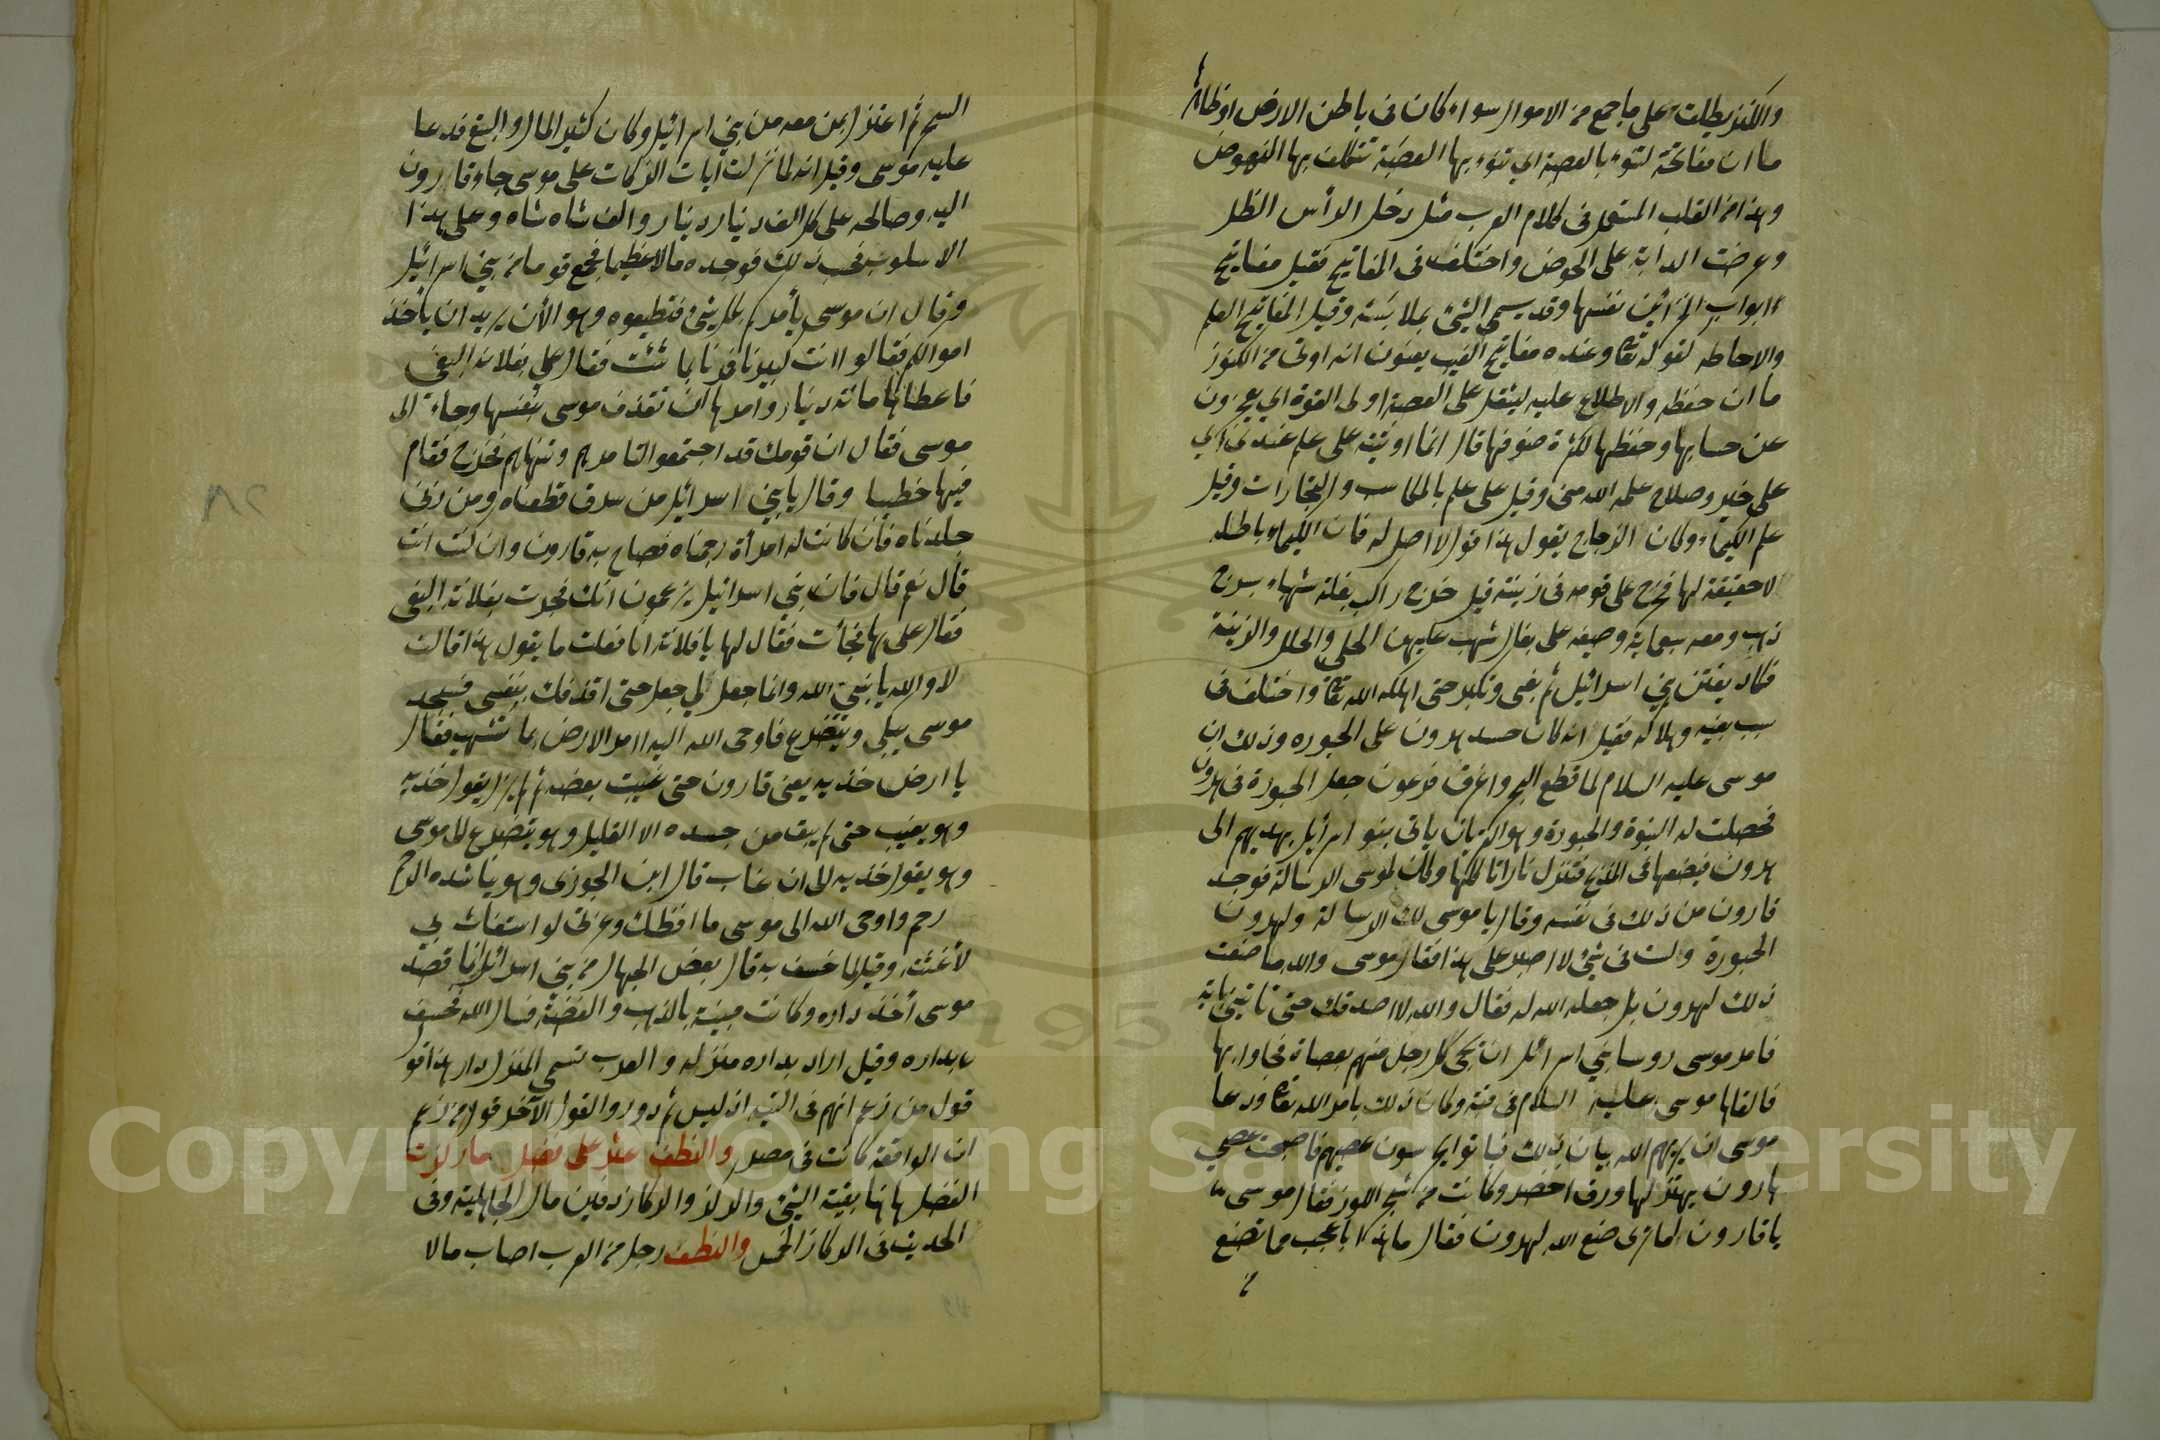 والكنز يطلق على ما جمع من الاموال سواء كان فى باطن الارض او ظاهرها
ما ان مفاتحه لتنوء بالعصبة اي تنوء بها العصبة تتكلف بها النهوض
وهذا من القلب المستعمل فى كلام العرب مثل دخل الرأس الظل
وعرضت الدابة على الحوض واختلف فى المفاتيح فقيل مفاتيح
ابواب الخزائين نفسها وقد يسمى الشئ بملابسته وقيل المفاتيح العلم
والاحاطه لقوله تعا وعنده مفاتح الغيب يعنون انه اوتى من الكنوز
ما ان حفظه والاطلاع عليه ليثقل على العصبة اولى القوة اي يعجزون
عن حسابها وحفظها لكثرة صنوفها قال انما اوتيته على علم عندى اي
على خير وصلاح علمه الله منى وقيل على علم بالمكاسب والتجارات وقيل
علم الكيمياء وكان الزجاج يقول هذا قول لا اصل له فان الكيمياء باطله
لا حقيقة لها فخرج على قومه فى زينته قيل خرج راكب بغلة شهباء بسرج
ذهب ومعه سبعماية وصيفه على بغال شهب عليهن الحلى والحلل والزينة
فكاد يفتن بني اسرائيل ثم بغى وتكبر حتى اهلكه الله تعا واختلف فى
سبب بغيه وهلاكه فقيل انه كان حسد هرون على الحبوره وذلك ان
موسى عليه السلام لما قطع اليم واغرق فرعون جعل الحبورة فى هرون
فحصلت له النبوة والحبورة وهو القربان ياتى بنو اسرائيل بهديهم الى
هرون فيضعها فى المذبح فتنزل نار تاكلها وكان لموسى الرسالة فوجد
قارون من ذلك فى نفسه وقال يا موسى لك الرسالة ولهرون
الحبورة ولست فى شئ لا اصبر على هذا فقال موسى والله ما صنعت
ذلك لهرون بل جعله الله له فقال والله لا اصدقك حتى تاتينى باية
فامر موسى روسا بني اسرائيل ان يجئ كل رجل منهم بعصاة فجاوا بها
فالقاها موسى عليه السلام فى قبة وكان ذلك بامر الله تعا ودعا
موسى ان يريهم الله بيان ذلك فباتوا يحرسون عصيهم فاصبحت عصى
هارون يهتز لها ورق اخضر وكانت من شجر اللوز فقال موسى
يا قارون اما ترى صنع الله لهرون فقال ما هذا باعجب مما تصنع
من
السحر ثم اعتزل بمن معه من بني اسرائيل وكان كثير المال والتبع فدعا
عليه موسى وقيل انه لما نزلت آيات الزكات على موسى جاء قارون
اليه وصالحه على كل الف دينار دينار والف شاه شاه وعلى هذا
الاسلوب فحسب ذلك فوجده مالا عظيما فجمع قوما من بني اسرائيل
وقال ان موسى يأمركم بكل شئ فتطيعوه وهو الأن يريد ان يأخذ
اموالكم فقالوا انت كبيرنا فمرنا بما شئت فقال علي بفلانة البغى
فاعطاها مائة دينار وامرها ان تقذف موسى بنفسها وجاء الى
موسى فقال ان قومك قد اجتمعوا لتامرهم وتنهاهم فخرج فقام
فيهم خطيبا وقال يا بني اسرائيل من سرق قطعناه ومن زنى
جلدناه فان كانت له امرأة رجمناه فصاح به قارون وان كنت انت
قال نعم قال فان بني اسرائيل يزعمون انك فجرت بفلانة البغى
فقال علي بها فجأت فقال لها يا فلانة انا فعلت ما يقول هذا قالت
لا والله يا نبي الله وانما جعل لي جعل حتى اقذفك بنفسى فسجد
موسى يبكي ويتضرع فاوحى الله اليه امر الارض بما شئت فقال
يا ارض خذيه يعنى قارون حتى غيبت بعضه ثم لم يزل يقول خذيه
وهو يغيب حتى لم يبق من جسده الا القليل وهو يتضرع لموسى
وهو يقول خذيه الى ان غاب قال ابن الجوزى وهو يناشده الرحم
رحم واوحى الله الى موسى ما افظك وعزتى لو استغاث بي
لأغثته وقيل لما خسف به قال بعض الجهال من بني اسرائيل انما قصد
موسى أخذ داره وكانت مبنية بالذهب والفضة فسال الله فخسف
بداره وقيل اراد بداره منزله والعرب تسمى المنزل دار هذا قو
قول من زعم انهم فى التيه اذ ليس ثم دور والقول الآخر قول من زعم
ان الواقعة كانت فى مصر والنطف عثر على فضل ما ركزت
الفضل هاهنا بقية الشئ والركز والركاز دفين مال الجاهلية وفى
الحديث فى الركاز الخمس والنطف رجل من العرب اصاب مالا
Copyright © King Saud University
1957